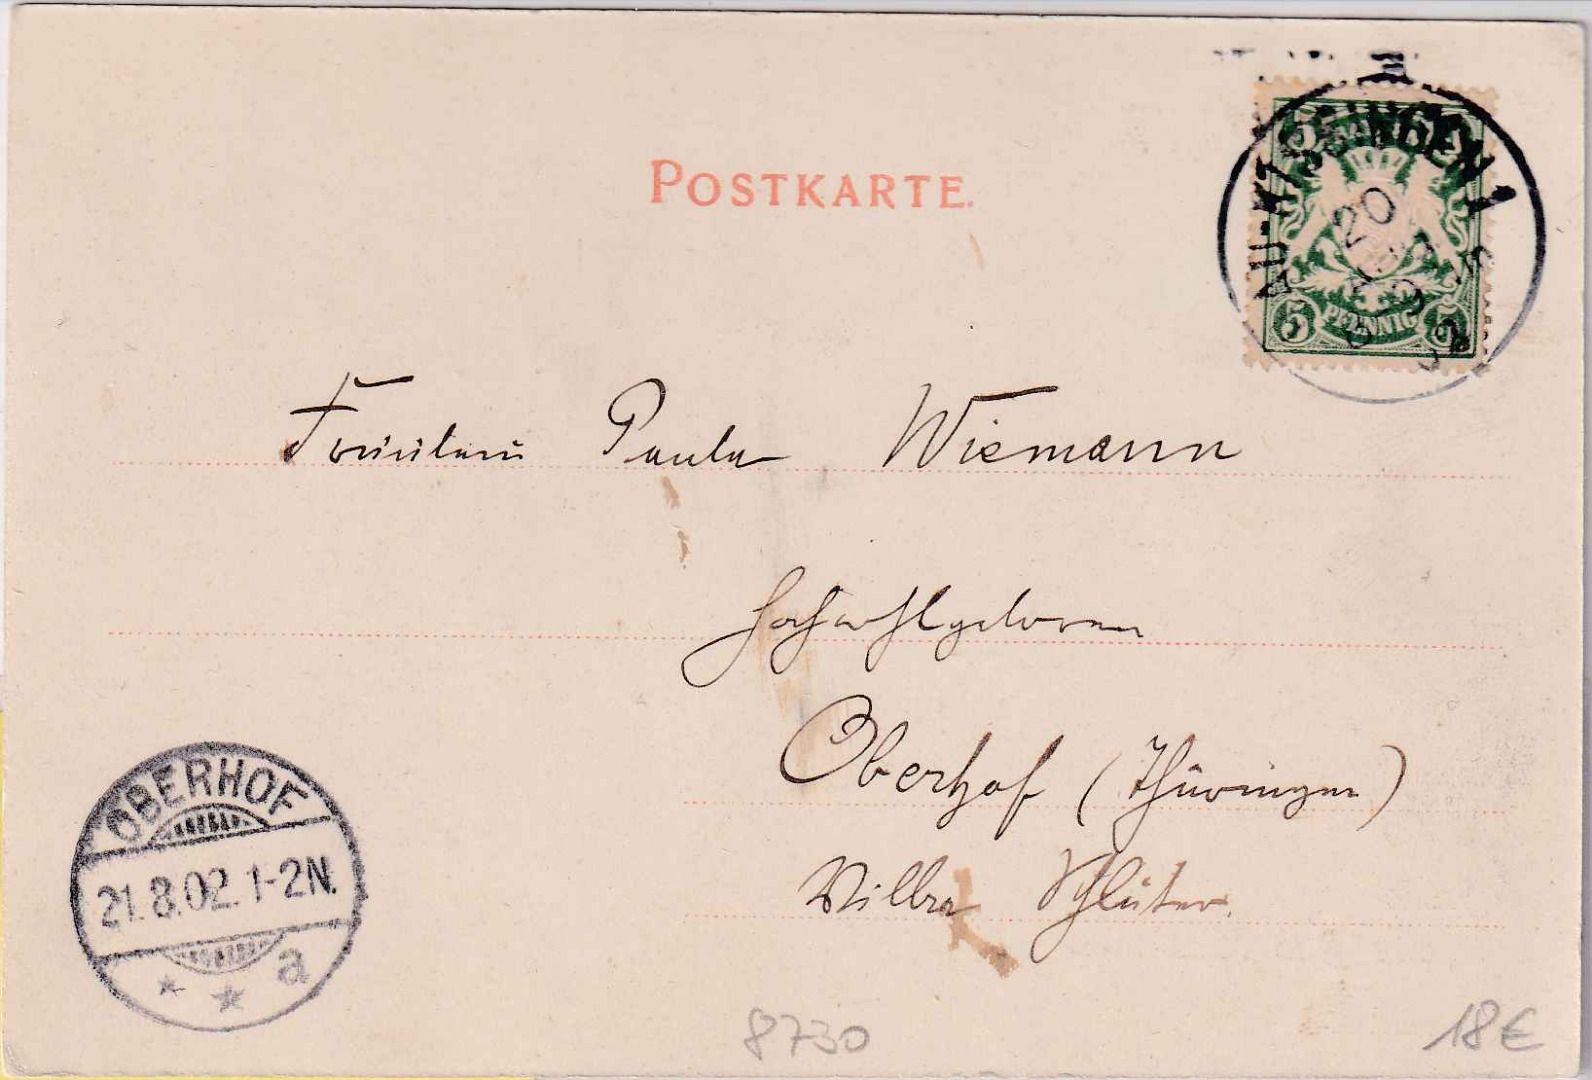 POSTKARTE.
BAD-KISSINGEN 1
20
5 PFENNIG 5
Fräulein Paula Wiemann
Hochwohlgeboren
Oberhof (Thüringen)
Villa Schlüter.
OBERHOF
21.8.02.1-2N.
* * a
8730
18€